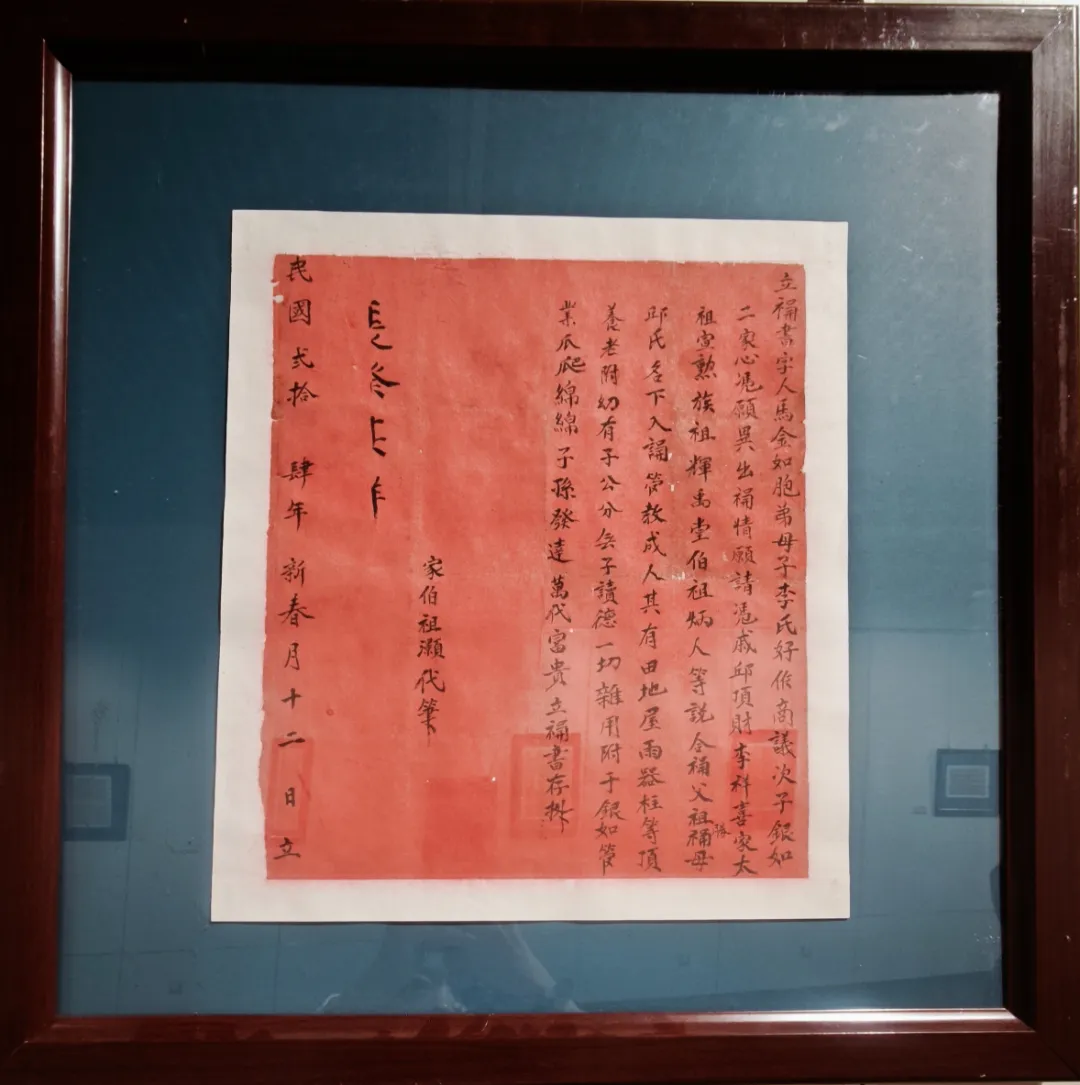 立禣書字人馬金如胞弟母子李氏好作商議次子銀如
二家心憑願異出禣情願請憑戚邱項財李祥喜家太
祖宻勲族祖輝禹堂伯祖炳人等説合禣父祖禣母
邱氏名下入誧管教成人其有田地屋雨器柱等項
養老附幼有子公分無子讀德一切雜用附于銀如管
業瓜爬綿綿子孫發達萬代富貴立禣書存
家伯祖灝代筆
民國弍拾肆年新春月十二日立